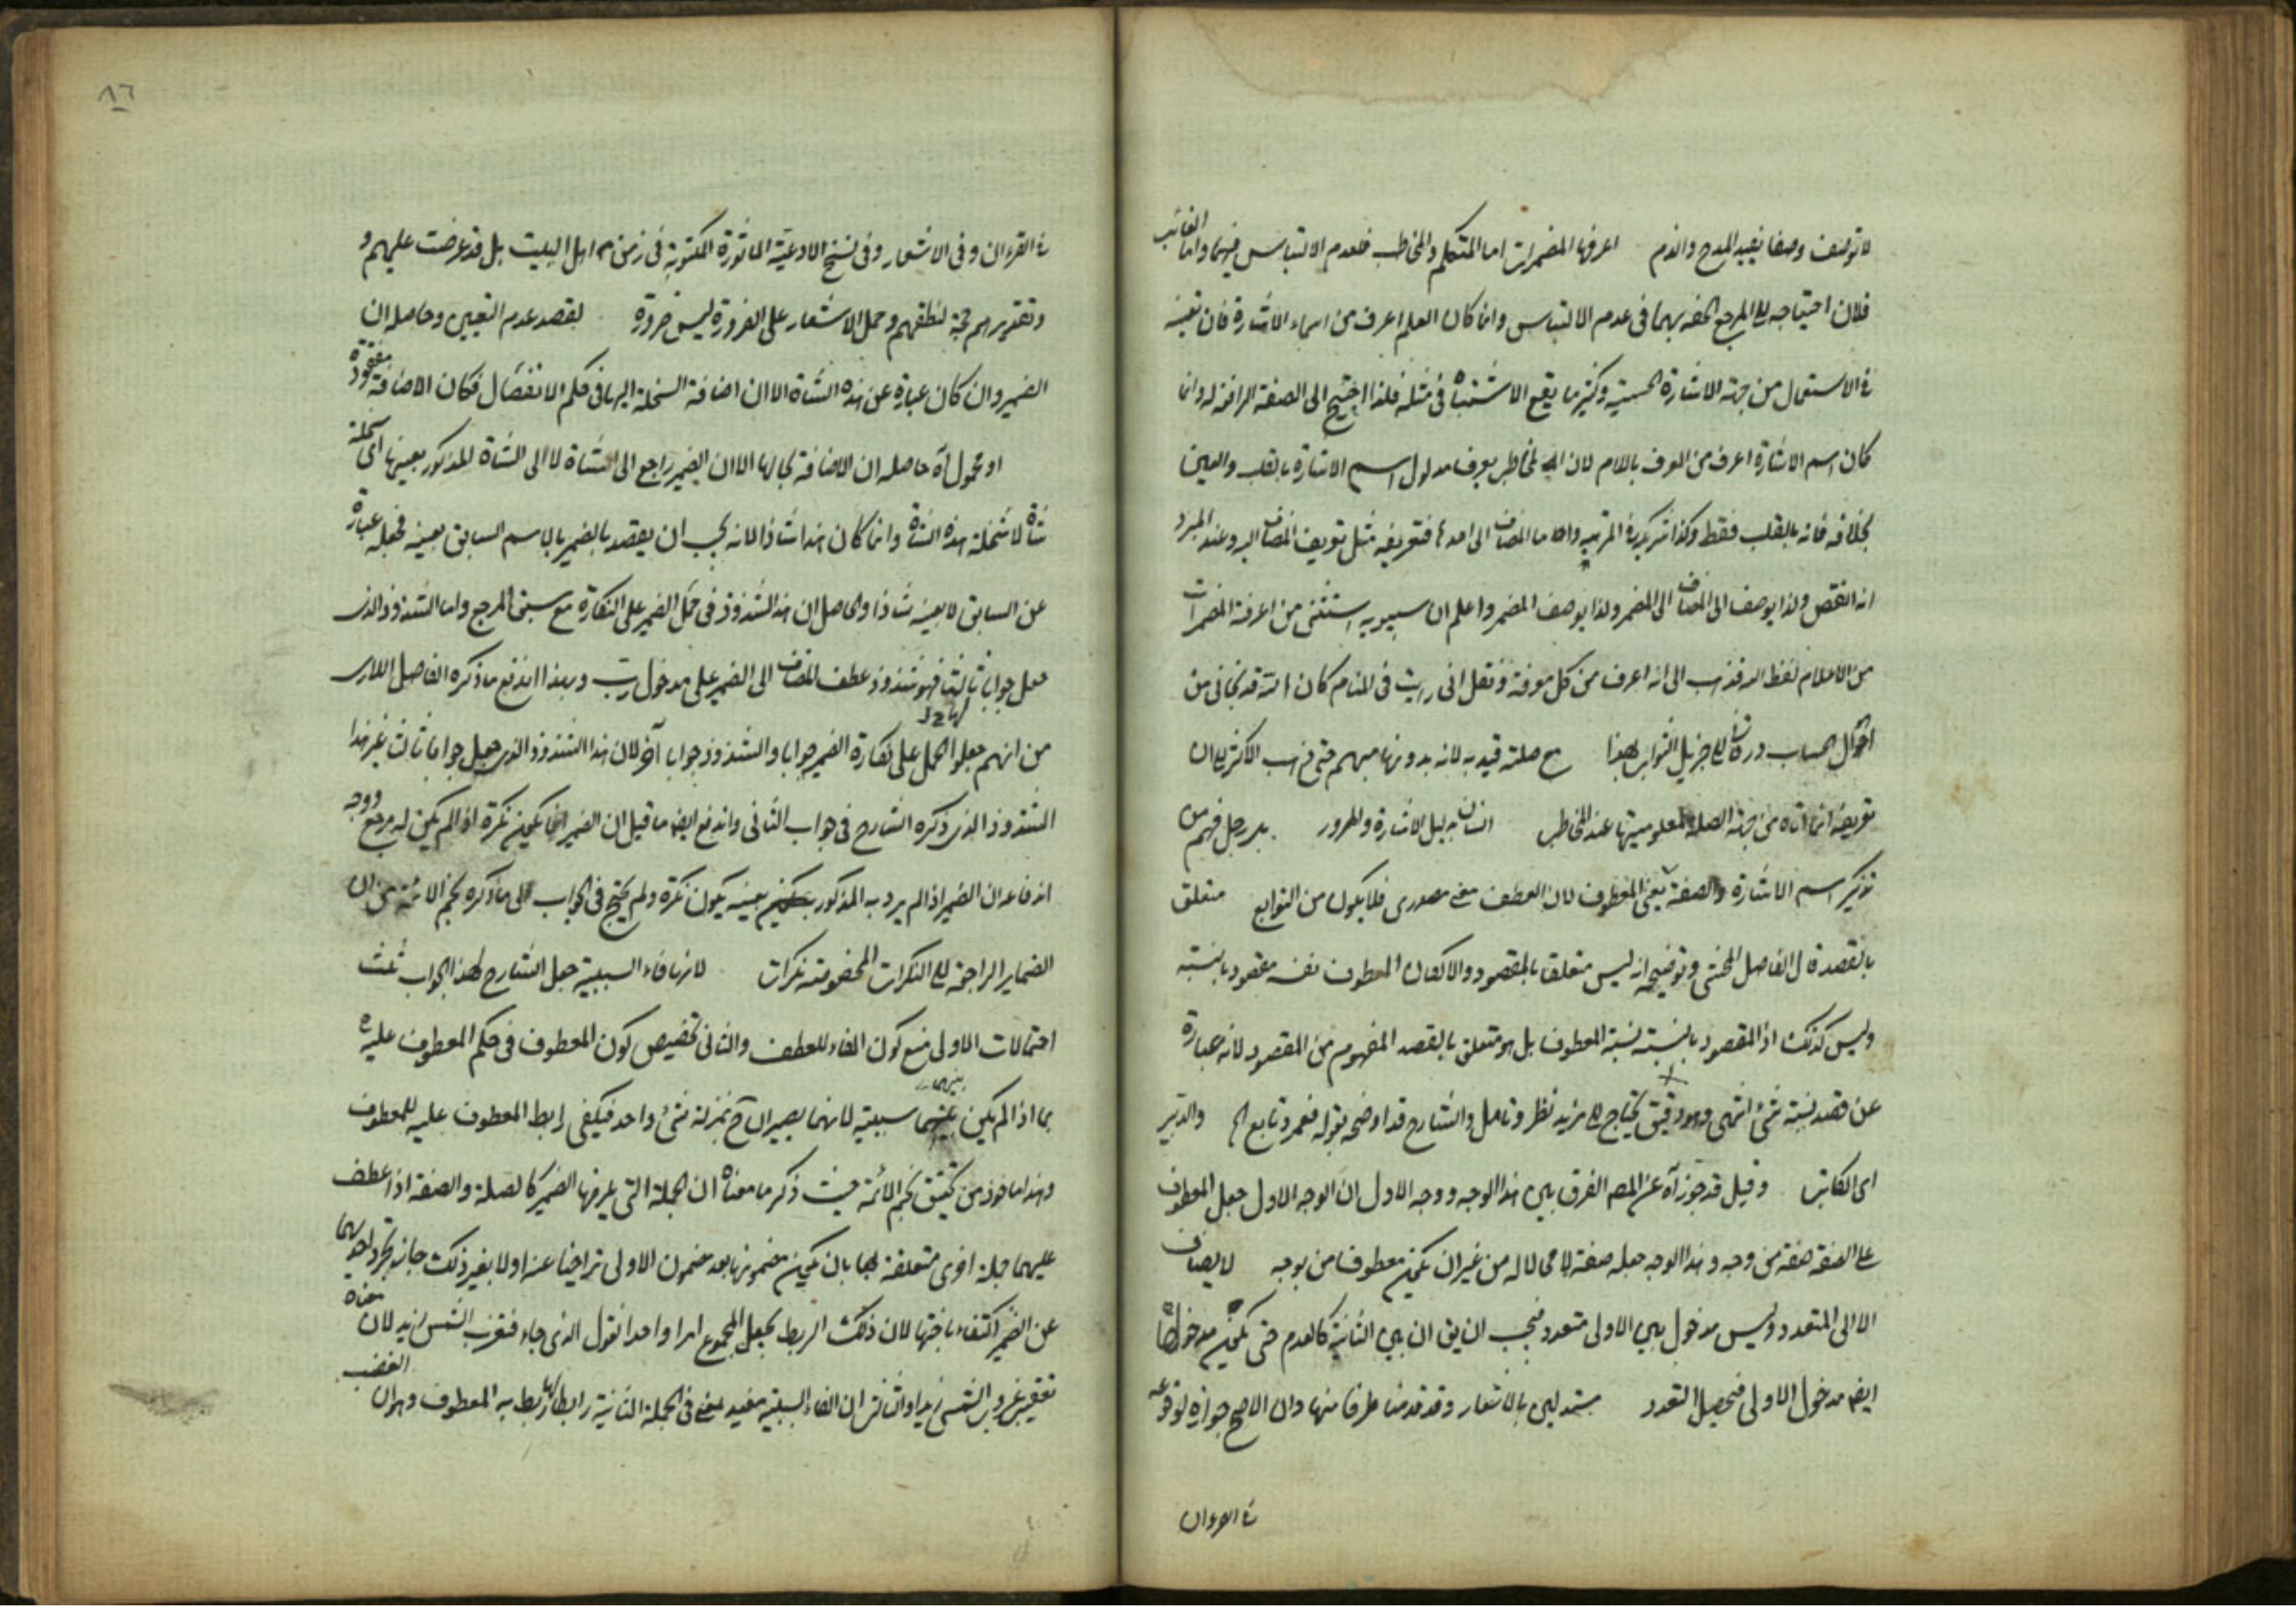 لا توصف وصفا يفيد المدح والذم اعرفها المضمرات اما المتكلم والمخاطب فلعدم الالتباس فيهما واما الغائب
فلان احتياجه الى المرجع الحقه بهما فى عدم الالتباس وانما كان العلم اعرف من اسماء الاشارة فان تعينه
فى الاستعمال من جهة الاشارة الحسية وكثيرما يقع الاشتباه فى مثله فلذا احتيج الى الصفة الرافعة له وانما
كان اسم الاشارة اعرف من المعرف باللام لان المخاطب يعرف مدلول اسم الاشارة بالقلب والعين
بخلافه فانه بالقلب فقط وكذا المرتبه واما المضاف الى احدها فتعريفه مثل تعريف المضاف اليه وعند المبرد
انه انقص ولذا يوصف المضاف الى المضمر ولذا يوصف المضمر واعلم ان سيبويه استثنى من اعرفة المضمرات
من الاعلام لفظ الله فذهب الى انه اعرف من كل معرفة ونقل انى رايت فى المنام كان الله قد نجانى من
احوال الحساب الى جزيل الثواب لهذا مع صلته قيد به لانه بدونها مبهم حتى ذهب الاكثر الى ان
تعريفه انما اتاه من جهة الصلة لمعلوميتها عند المخاطب بدليل الاشارة والمرور بدر رجل فهم من
تذكير اسم الاشارة والصفة يعنى المعطوف لان العطف معنى مصدرى فلا يكون من التوابع متعلق
بالقصد قال الفاضل المحشى وتوضيحه انه ليس متعلقا بالمقصود والا لكان المعطوف نفسه مقصودا بالنسبة
وليس كذلك اذ المقصود بالنسبة نسبة المعطوف بل هو متعلق بالقصد المفهوم من المقصود لانه عبارة
عن قصد نسبة شئ انتهى وهو دقيق يحتاج الى مزيد نظر وتامل والشارح قد اوضحه بقوله فعمرو تابع الخ والدبير
اى الكاتب وقيل قد جوز آه عن المصـ الفرق بين هذا الوجه ووجه الاول ان الوجه الاول جعل المعطوف
على الصفة صفة من وجه وهذا الوجه جعله صفة لا محالا له من غير ان يكون معطوفا من بوجه لا يضاف
الا الى المتعدد وليس مدخول بين الاولى متعدد فيجب ان يق ان بين الثانية كالعدم حتى يكون مدخولها
ايضا مدخول الاولى فيحصل التعدد مستدلين بالاشعار وقد قدمنا طرفا منها وان الاصح جوازه لوقوعه
فى القرءان
فى القرءان وفى الاشعار وفى نسخ الادعية الماثورة المكتوبة فى زمن اهل البيت بل قد عرضت عليهم و
وتقريرهم حجة لنطقهم وحمل الاشعار على الضرورة ليس ضرورة لقصد عدم التعيين وحاصله ان
الضمير وان كان عبارة عن هذه الشاة الا ان اضافة السخلة اليها فى حكم الانفصال فكان الاضافة مفقودة
او محمول آه حاصله ان الاضافة بحالها الا ان الضمير راجع الى الشاة لا الى الشاة المذكور بعينها اى سخلة
شاة لا سخلة هذه الشاة وانما كان هذا شاذا لانه يجب ان يقصد بالضمير بالاسم السابق بعينه فجعله عبارة
عن السابق لا بعينه شاذا والحاصل ان هذا الشذوذ فى حمل الضمير على النكارة مع سبق المرجع واما الشذوذ الذى
جعل جوابا ثالثا فهو شذوذ عطف المضاف الى الضمير على مدخول رب وبهذا اندفع ما ذكره الفاضل اللارى
من انهم جعلوا الحمل على نكارة الضمير جوابا والشذوذ جوابا آخر لان هذا الشذوذ الذى جعل جوابا ثالث غير هذا
الشذوذ الذى ذكره الشارح فى جواب الثانى واندفع ايضا ما قيل ان الضمير انما يكون نكرة اذا لم يكن له مرجع ووجه
اندفاعه ان الضمير اذا لم يرد به المذكور بعينه يكون نكرة ولم يحتج فى الجواب الى ما ذكره نجم الائمة من ان
الضماير الراجعة الى النكرات المخصوصة نكرات لانها فاء السببية جعل الشارح لهذا الجواب ثلث
احتمالات الاولى منع كون الفاء للعطف والثانى تخصيص كون المعطوف فى حكم المعطوف عليه
بما اذا لم يكن بينهما سببية لانهما يصيران ح بمنزلة شئ واحد فيكفى رابط المعطوف عليه للمعطوف
وهذا ماخوذ من تحقيق نجم الائمة حيث ذكر ما معناه ان الجملة التى يلزمها الضمير كالصلة والصفة اذا عطف
عليهما جملة اخرى متعلقة بها بان يكون مضمونها بعد مضمون الاولى تراخيا عنه اولا بغير ذلك جاز تجرد احديهما
عن الضمير اكتفاء باختها لان ذلك الربط يجعل المجموع امرا واحدا نقول الذى جاء فتغرب الشمس زيد لان معناه
تعقيب غروب الشمس زيد او الثالث ان الفاء السببية مفيد معنى فى الجملة الثانية رابطا لها يربط به المعطوف وهو ان الغضب